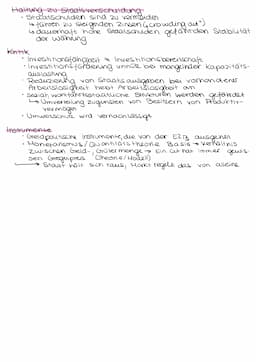 Haltung zu Staatsverschuldung
· Staatsschulden sind zu vermeiden
↳ führen zu steigenden Zinsen („crowding out“)
↳ dauerhaft hohe Staatsschulden gefährden Stabilität
der Währung
Kritik
· Investitionsfähigkeit ≠ Investitionsbereitschaft
· Investitionsförderung unnütz bei mangelnder Kapazitäts-
auslastung
· Reduzierung von Staatsausgaben bei vorhandener
Arbeitslosigkeit hebt Arbeitslosigkeit an
· Sozial, wohlfahrtsstaatliche Strukturen werden gefährdet
↳ Umverteilung zugunsten von Besitzern von Produktiv-
vermögen
· Umweltschutz wird vernachlässigt
Instrumente
· Geldpolitische Instrumente, die von der EZB ausgehen
· Monetarismus/Quantitätstheorie Basis → Verhältnis
zwischen Geld-, Gütermenge → Ein Gut hat immer gewis-
sen Gegenpreis (Theorie/Modell)
→ Staat hält sich raus, Markt regelt das von alleine